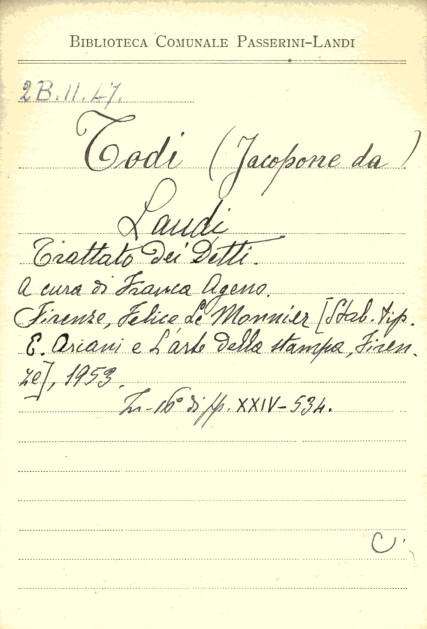 BIBLIOTECA COMUNALE PASSERINI-LANDI
2B.II.47.
Todi (Jacopone da)
Laudi
Trattato dei Detti.
A cura di Franca Ageno.
Firenze, Felice Le Monnier [Stab. tip.
E. Ariani e L'arte della stampa, Firen-
ze], 1953.
In-16° di pp. XXIV-534.
C.